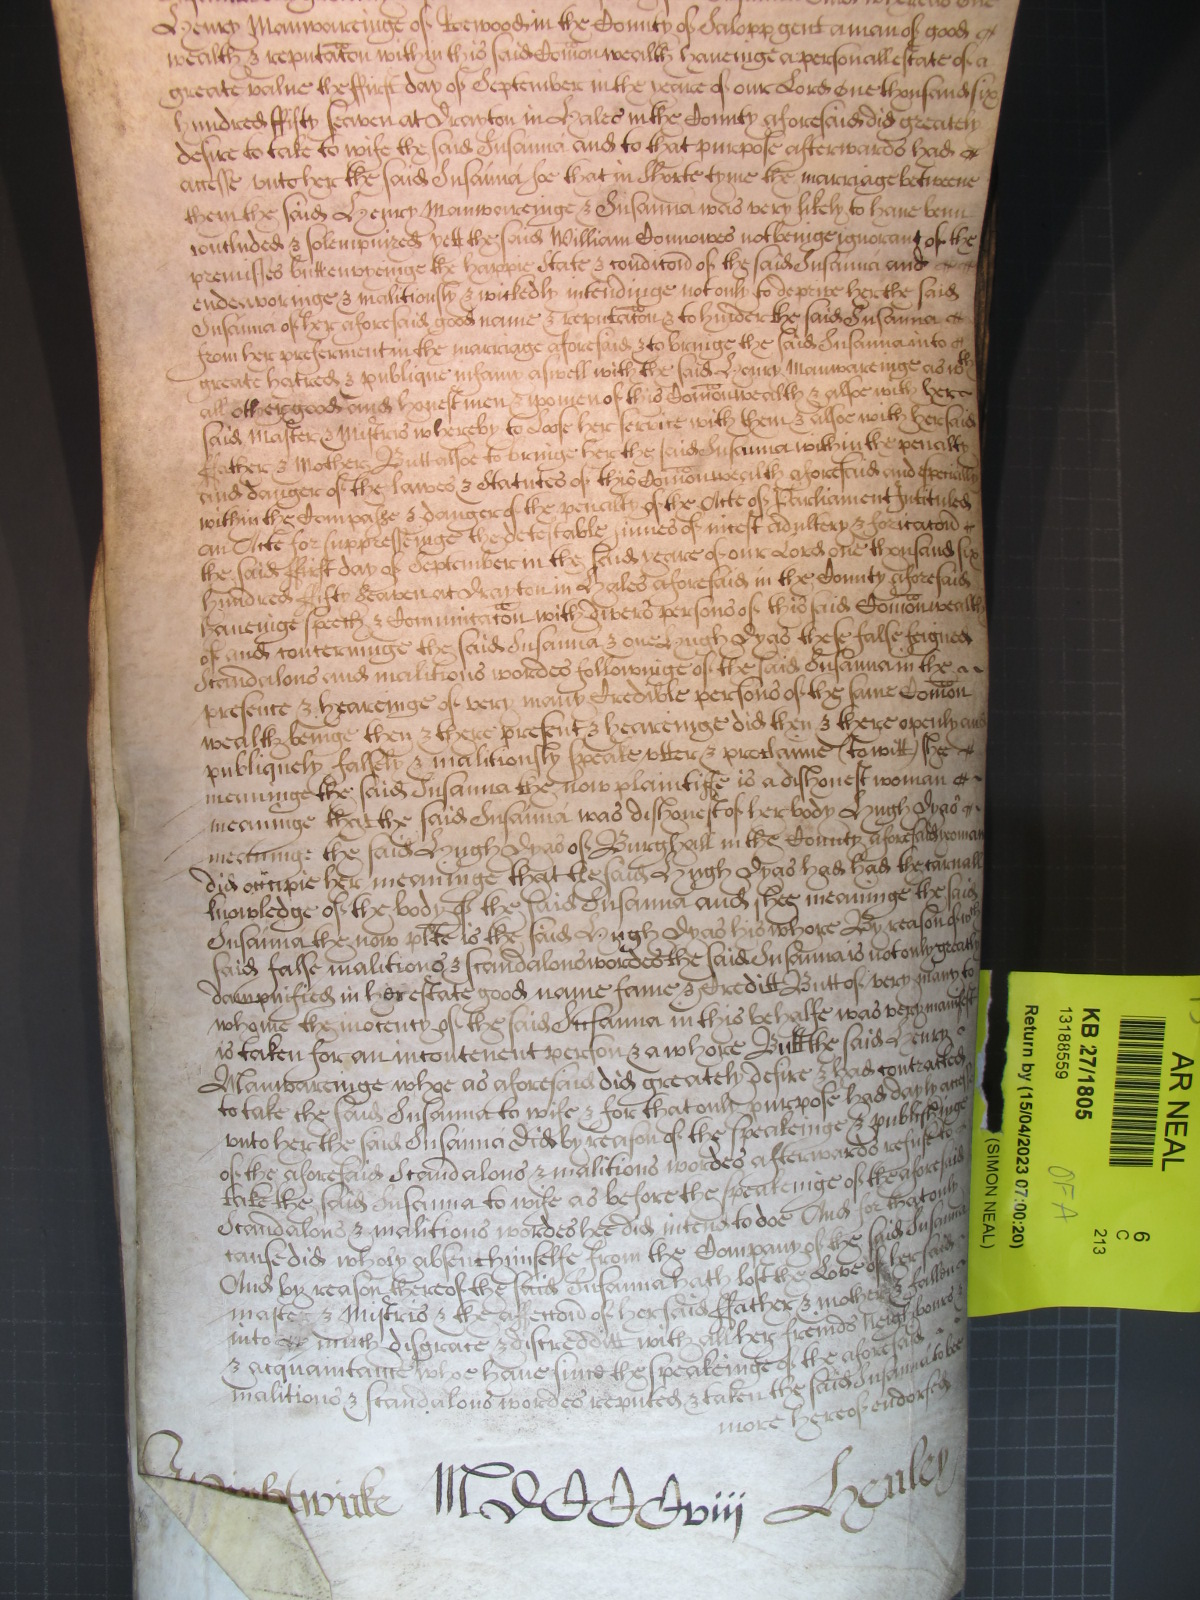 Henry Manwareinge of in the County of Salopp gent a man of good
wealth & reputacon within this said Comonwealth haveinge a personall estate of a
greate value the ffirst day of September in the yeare of our Lord One thousand six
hundred ffifty seaven at Drayton in Hales in the County aforesaid did greately
desire to take to wife the said Susanna and to that purpose afterwards had
accesse unto her the said Susanna soe that in shorte tyme the marriage betweene
them the said Henry Manwareinge & Susanna was very likely to have benn
concluded & solempnized yett the said William Connowes not beinge ignorant of the
premisses butt envyeinge the happie state & condicon of the said Susanna and
endeavoringe & malitiously & wickedly intendinge not only to deprive her the said
Susanna of her aforesaid good name & reputacon & to hinder the said Susanna
from her preferment in the marriage aforesaid & to bringe the said Susanna into
greate hatred & publique infamy aswell with the said Henry Manwareinge as with
all other good and honest men & women of this Comonwealth & alsoe with here
said Master & Mistris whereby to loose her service with them & alsoe with her said
ffather & Mother Butt alsoe to bringe her the said Susanna within the penalty
and danger of the lawes & Statutes of this Comonwealth aforesaid and especially
within the Compasse & danger of the penalty of the Acte of Parliament Intituled
an Acte for suppresseinge the detestable sinnes of incest Adultery & fornicacon
the said ffirst day of September in the said yeare of our Lord one thousand six
hundred ffifty Seaven at Drayton in Hales aforesaid in the County aforesaid
haveinge speech & Comunicacon with divers persons of this said Comonwealth
of and concerninge the said Susanna & one Hugh Dyas these false feigned
Scandalous and malitious wordes followinge of the said Susanna in the
presence & heareinge of very many Credible persons of the same Comon
wealth beinge then & there present & heareinge did then & there openly and
publiquely falsely & malitiously speake utter & proclaime (to witt) shee
meaninge the said Susanna the now plaintiffe is a dishonest woman
meaninge that the said Susanna was dishonest of her body Hugh Dyas
meaninge the said Hugh Dyas of Burghall in the County aforesaid
did occupie her meaninge that the said Hugh Dyas had had the carnall
knowledge of the body of the said Susanna and shee meaninge the said
Susanna the now plte is the said Hugh Dyas his whore By reason of
said false malitious & scandalous wordes the said Susanna is not only greatly
dampnified in her estate good name fame & Creditt Butt of very many to
whome the inocency of the said Susanna in this behalfe was very manifest
is taken for an incontenent person & a whore Butt the said Henry
Manwareinge whoe as aforesaid did greately desire & had contracted
to take the said Susanna to wife & for that only purpose had dayly accesse
unto her the said Susanna Did by reason of the speakeinge & publishinge
of the aforesaid Scandalous & malitious wordes afterwards refuse to
take the said Susanna to wife as before the speakeinge of the aforesaid
Scandalous & malitious wordes hee did intend to doe And for that only
cause did wholy absent himselfe from the Company of the said Susanna
And by reason thereof the said Susanna hath lost the Love of her said
master & Mistris & the affeccon of her said ffather & mother & fallen
into much disgrace & discreditt with all her frends neighbours
& acquaintance whoe have since the speakeinge of the aforesaid
malitious & scandalous wordes reputed & taken the said Susanna to bee
more hereof endorsed
Wightwicke MDCCCviii Henley
AR NEAL
6
C
213
KB 27/1805
13188559
OFA
Return by (15/04/2023 07:00:20)
(SIMON NEAL)